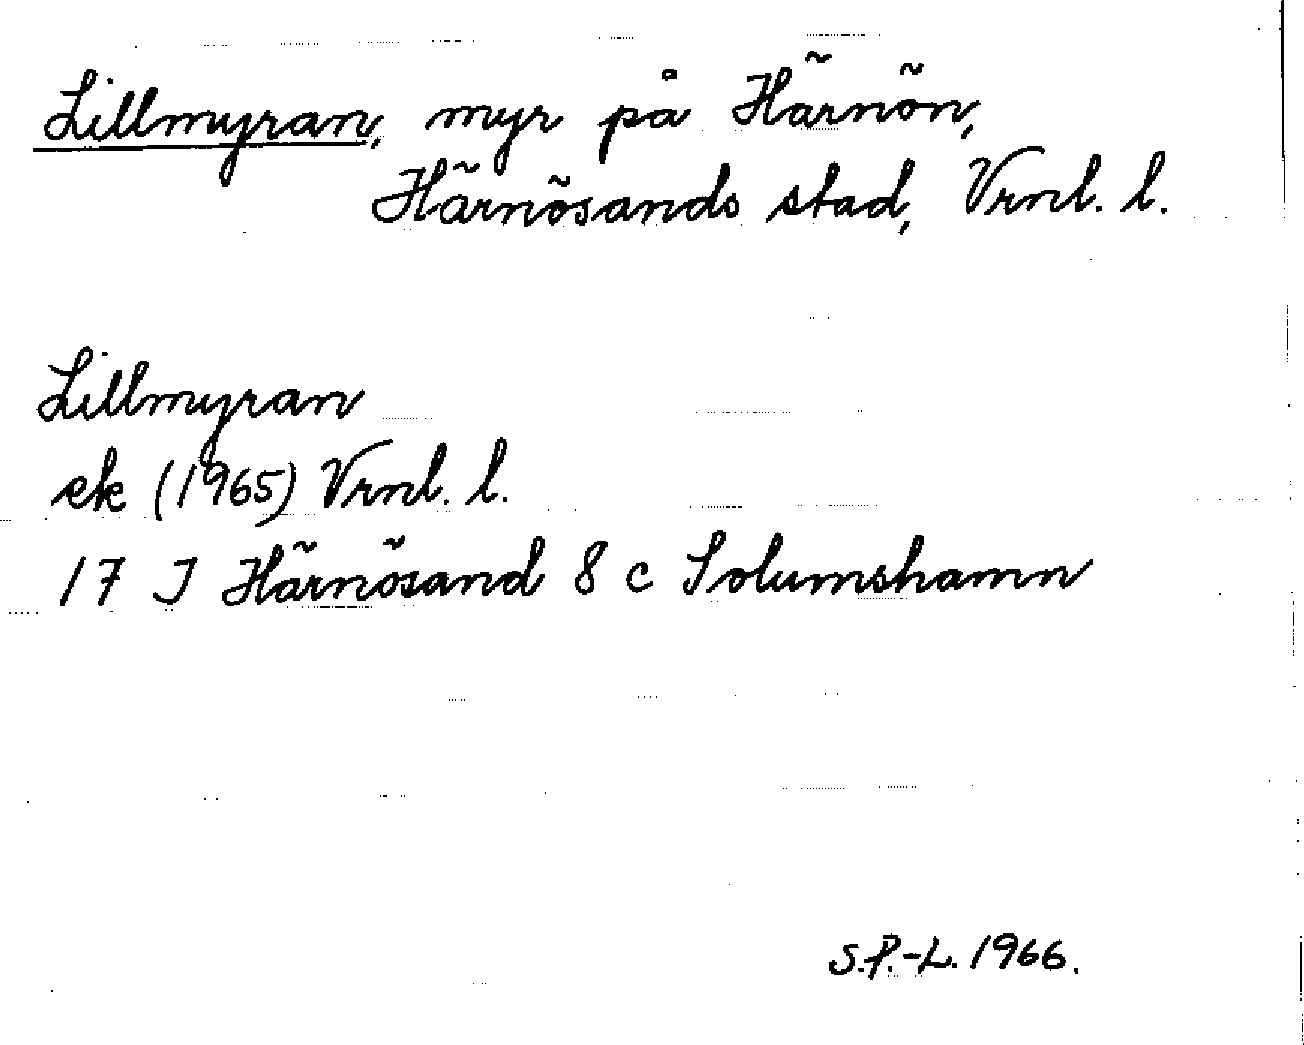 Lillmyran, myr på Härnön,
Härnösands stad, Vrnl. l.
Lillmyran
ek (1965) Vrnl. l.
17 J Härnösand 8 c Solumshamn
S.P.-L. 1966.